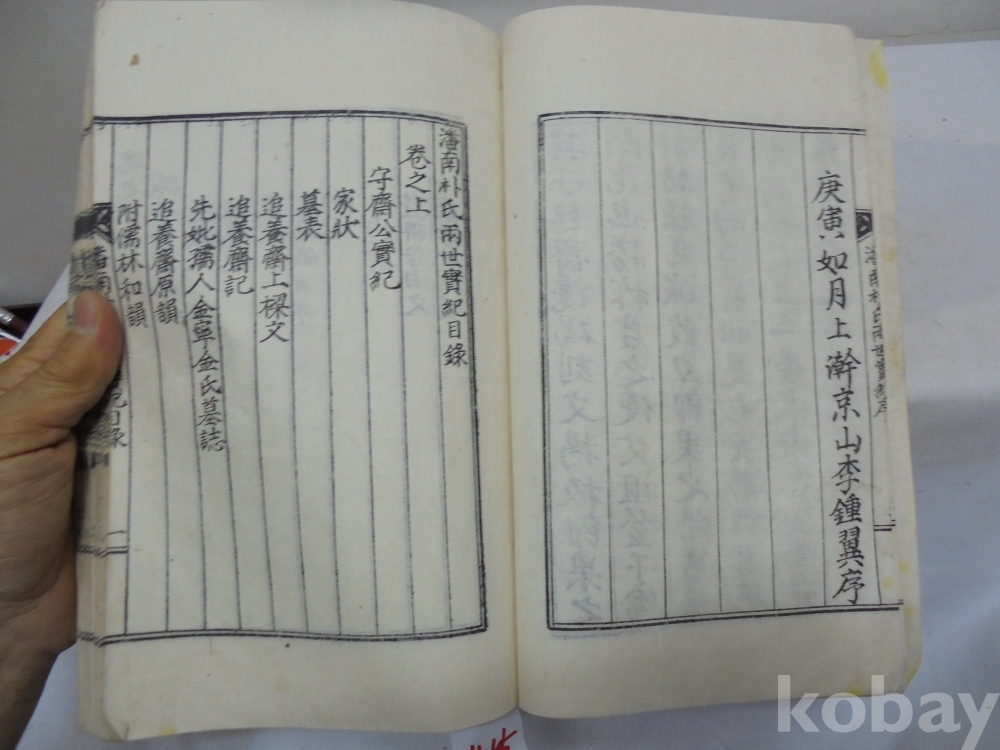 庚寅如月上澣京山李鍾翼序
潘南朴氏兩世實紀序
潘南朴氏兩世實紀目錄
卷之上
守齋公實紀
家狀
墓表
追養齋上樑文
追養齋記
先妣孺人金寧金氏墓誌
追養齋原韻
附儒林和韻
kobay